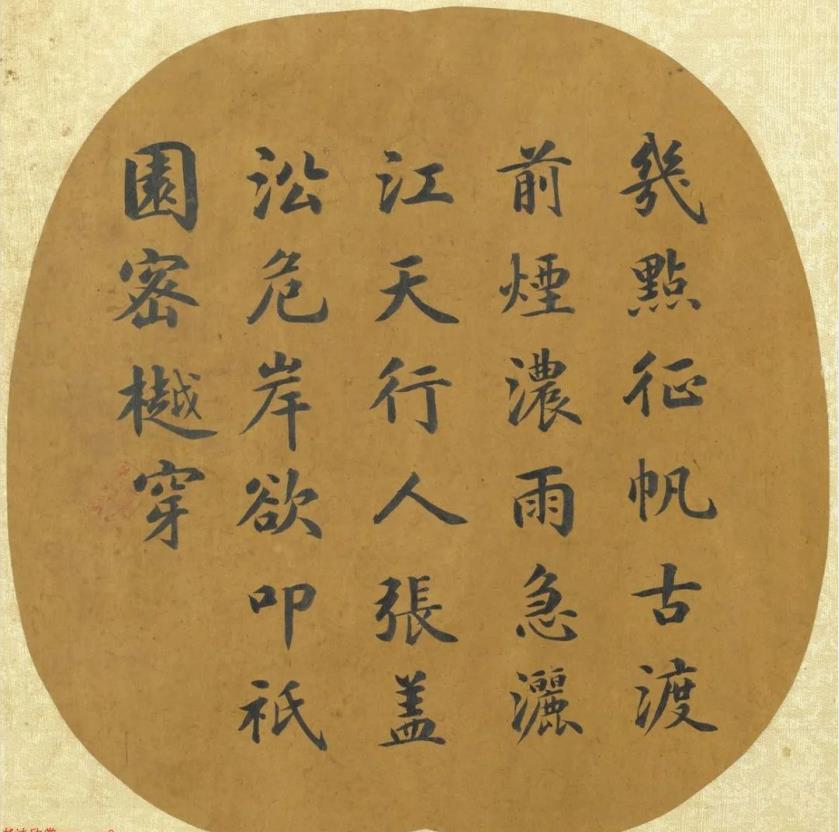 幾點征帆古渡
前煙濃雨急灑
江天行人張盖
㳂危岸欲叩祇
園密樾穿